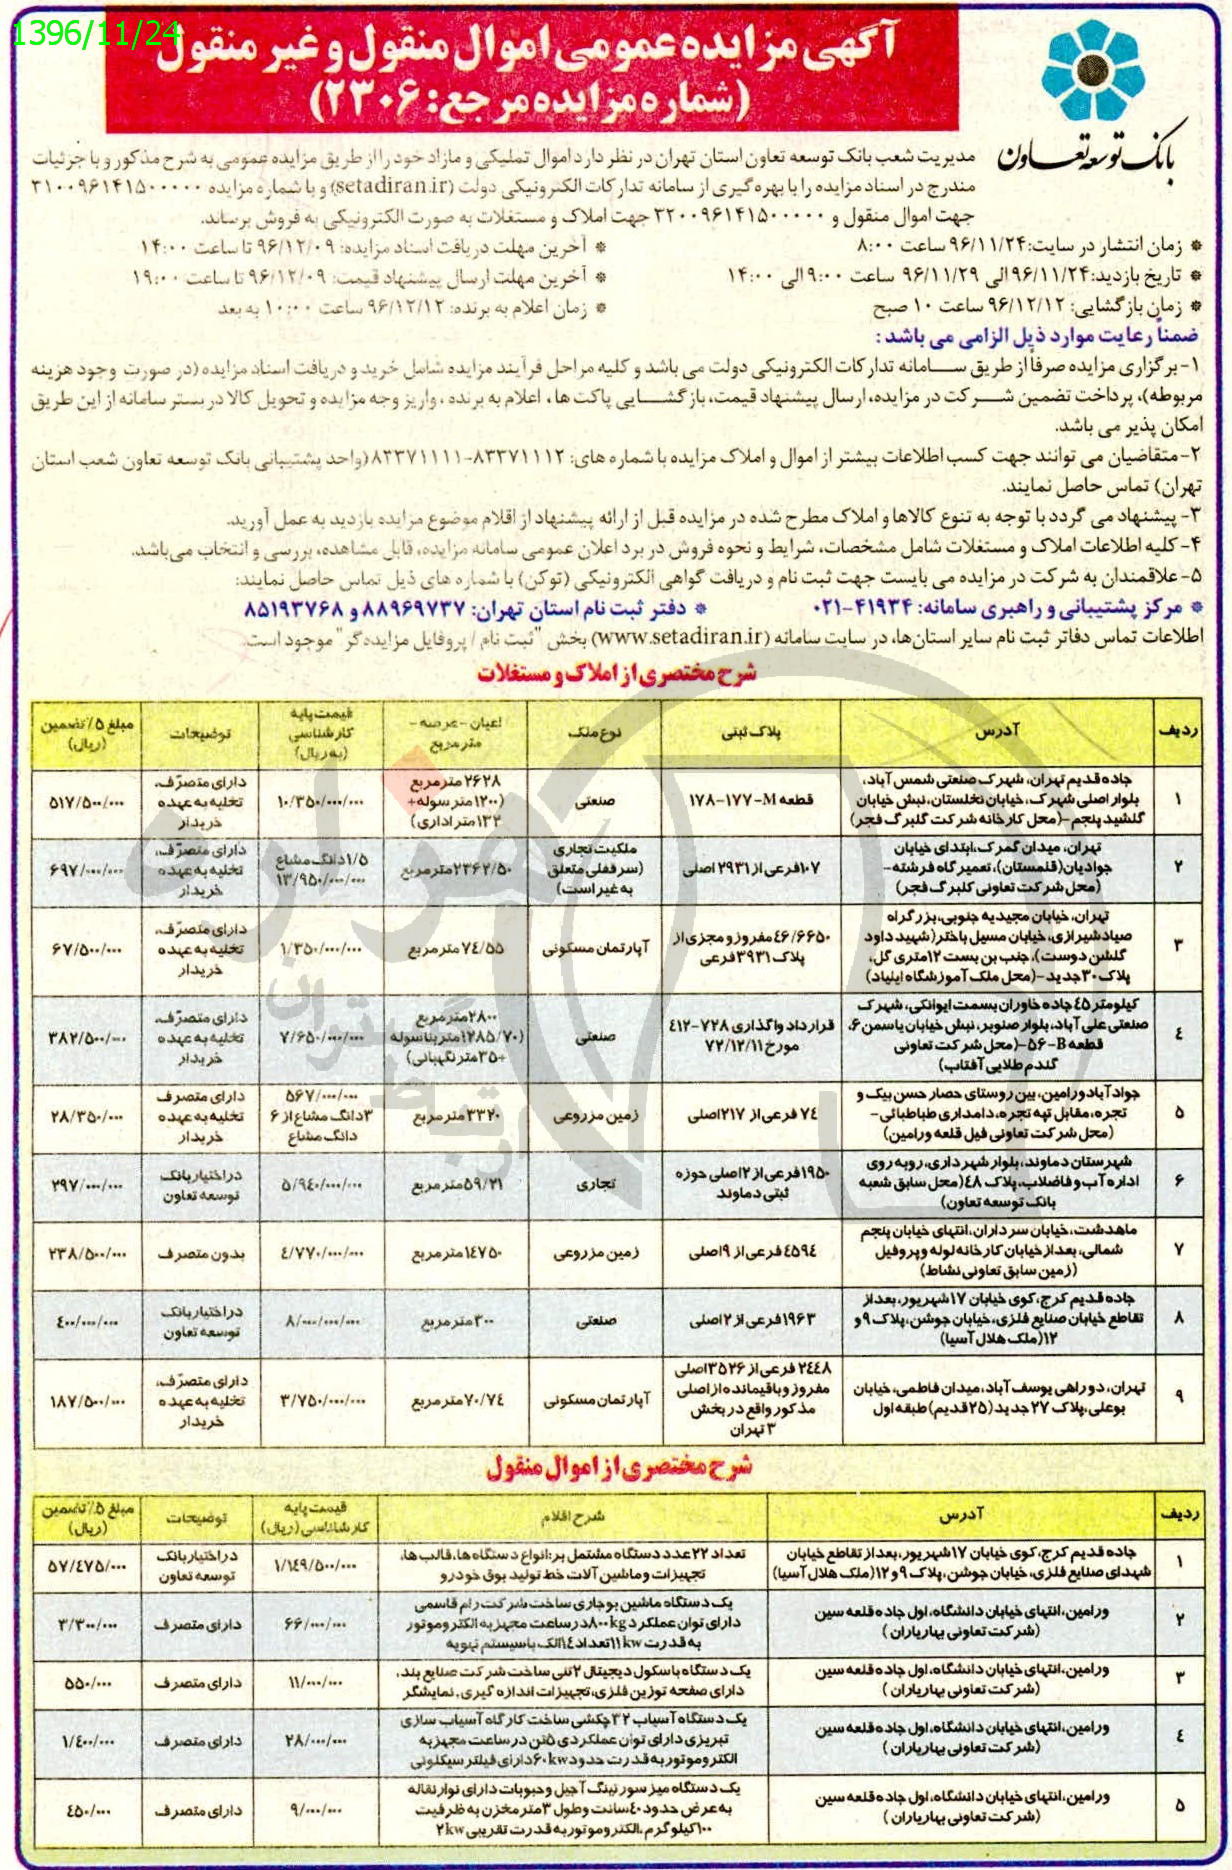 1396/11/24
آگهی مزایده عمومی اموال منقول و غیر منقول
(شماره مزایده مرجع: ۲۳۰۶)
بانک توسعه تعاون
مدیریت شعب بانک توسعه تعاون استان تهران در نظر دارد اموال تملیکی و مازاد خود را از طریق مزایده عمومی به شرح مذکور و با جزئیات
مندرج در اسناد مزایده را با بهره گیری از سامانه تدارکات الکترونیکی دولت (setadiran.ir) و با شماره مزایده ۳۱۰۰۹۶۱۴۱۵۰۰۰۰۰۰
جهت اموال منقول و ۳۲۰۰۹۶۱۴۱۵۰۰۰۰۰۰ جهت املاک و مستغلات به صورت الکترونیکی به فروش برساند.
* زمان انتشار در سایت: ۹۶/۱۱/۲۴ ساعت ۸:۰۰
* آخرین مهلت دریافت اسناد مزایده: ۹۶/۱۲/۰۹ تا ساعت ۱۴:۰۰
* تاریخ بازدید: ۹۶/۱۱/۲۴ الی ۹۶/۱۱/۲۹ ساعت ۹:۰۰ الی ۱۴:۰۰
* آخرین مهلت ارسال پیشنهاد قیمت: ۹۶/۱۲/۰۹ تا ساعت ۱۹:۰۰
* زمان بازگشایی: ۹۶/۱۲/۱۲ ساعت ۱۰ صبح
* زمان اعلام به برنده: ۹۶/۱۲/۱۲ ساعت ۱۰:۰۰ به بعد
ضمناً رعایت موارد ذیل الزامی می باشد:
۱- برگزاری مزایده صرفاً از طریق سامانه تدارکات الکترونیکی دولت می باشد و کلیه مراحل فرآیند مزایده شامل خرید و دریافت اسناد مزایده (در صورت وجود هزینه
مربوطه)، پرداخت تضمین شرکت در مزایده، ارسال پیشنهاد قیمت، بازگشایی پاکت ها، اعلام به برنده، واریز وجه مزایده و تحویل کالا در بستر سامانه از این طریق
امکان پذیر می باشد.
۲- متقاضیان می توانند جهت کسب اطلاعات بیشتر از اموال و املاک مزایده با شماره های: ۸۳۳۷۱۱۱۲-۸۳۳۷۱۱۱۱ (واحد پشتیبانی بانک توسعه تعاون شعب استان
تهران) تماس حاصل نمایند.
۳- پیشنهاد می گردد با توجه به تنوع کالاها و املاک مطرح شده در مزایده قبل از ارائه پیشنهاد از اقلام موضوع مزایده بازدید به عمل آورید.
۴- کلیه اطلاعات املاک و مستغلات شامل مشخصات، شرایط و نحوه فروش در برد اعلان عمومی سامانه مزایده، قابل مشاهده، بررسی و انتخاب می‌باشد.
۵- علاقمندان به شرکت در مزایده می بایست جهت ثبت نام و دریافت گواهی الکترونیکی (توکن) با شماره های ذیل تماس حاصل نمایند:
* مرکز پشتیبانی و راهبری سامانه: ۴۱۹۳۴-۰۲۱ * دفتر ثبت نام استان تهران: ۸۸۹۶۹۷۳۷ و ۸۵۱۹۳۷۶۸
اطلاعات تماس دفاتر ثبت نام سایر استان‌ها، در سایت سامانه (www.setadiran.ir) بخش "ثبت نام / پروفایل مزایده‌گر" موجود است.
شرح مختصری از املاک و مستغلات
ردیف | آدرس | پلاک ثبتی | نوع ملک | اعیان - عرصه - مترمربع | قیمت پایه کارشناسی (به ریال) | توضیحات | مبلغ ۵٪ تضمین (ریال)
۱ | جاده قدیم تهران، شهرک صنعتی شمس آباد، بلوار اصلی شهرک، خیابان نخلستان، نبش خیابان گلشید پنجم -(محل کارخانه شرکت گلبرگ فجر) | قطعه M-۱۷۷-۱۷۸ | صنعتی | ۲۶۲۸ مترمربع (۱۲۰۰ متر سوله + ۱۳۲ متر اداری) | ۱۰/۳۵۰/۰۰۰/۰۰۰ | دارای متصرّف، تخلیه به عهده خریدار | ۵۱۷/۵۰۰/۰۰۰
۲ | تهران، میدان گمرک، ابتدای خیابان جوادیان (قلمستان)، تعمیرگاه فرشته - (محل شرکت تعاونی گلبرگ فجر) | ۱۰۷ فرعی از ۲۹۳۱ اصلی | ملکیت تجاری (سرقفلی متعلق به غیر است) | ۲۳۶۲/۵۰ مترمربع | ۱/۵ دانگ مشاع ۱۳/۹۵۰/۰۰۰/۰۰۰ | دارای متصرّف، تخلیه به عهده خریدار | ۶۹۷/۰۰۰/۰۰۰
۳ | تهران، خیابان مجیدیه جنوبی، بزرگراه صیاد شیرازی، خیابان مسیل باختر (شهید داود گلشن دوست)، جنب بن بست ۱۲ متری گل، پلاک ۳۰ جدید -(محل ملک آموزشگاه ایلیاد) | ۴۶/۶۶۵۰ مفروز و مجزی از پلاک ۳۹۳۱ فرعی | آپارتمان مسکونی | ۷۴/۵۵ مترمربع | ۱/۳۵۰/۰۰۰/۰۰۰ | دارای متصرّف، تخلیه به عهده خریدار | ۶۷/۵۰۰/۰۰۰
۴ | کیلومتر ۴۵ جاده خاوران بسمت ایوانکی، شهرک صنعتی علی آباد، بلوار صنوبر، نبش خیابان یاسمن ۶، قطعه B-۵۶ -(محل شرکت تعاونی گندم طلایی آفتاب) | قرارداد واگذاری ۷۲۸-۴۱۲ مورخ ۷۲/۱۲/۱۱ | صنعتی | ۲۸۰۰ مترمربع (۱۲۸۵/۷۰ متر بنا سوله +۳۵ متر نگهبانی) | ۷/۶۵۰/۰۰۰/۰۰۰ | دارای متصرّف، تخلیه به عهده خریدار | ۳۸۲/۵۰۰/۰۰۰
۵ | جوادآباد ورامین، بین روستای حصار حسن بیک و تجره، مقابل تپه تجره، دامداری طباطبائی - (محل شرکت تعاونی فیل قلعه ورامین) | ۷۴ فرعی از ۲۱۷ اصلی | زمین مزروعی | ۳۳۲۰ مترمربع | ۵۶۷/۰۰۰/۰۰۰ ۳ دانگ مشاع از ۶ دانگ مشاع | دارای متصرف تخلیه به عهده خریدار | ۲۸/۳۵۰/۰۰۰
۶ | شهرستان دماوند، بلوار شهرداری، روبه روی اداره آب و فاضلاب، پلاک ۴۸ (محل سابق شعبه بانک توسعه تعاون) | ۱۹۵۰ فرعی از ۲ اصلی حوزه ثبتی دماوند | تجاری | ۵۹/۲۱ مترمربع | ۵/۹۴۰/۰۰۰/۰۰۰ | در اختیار بانک توسعه تعاون | ۲۹۷/۰۰۰/۰۰۰
۷ | ماهدشت، خیابان سرداران، انتهای خیابان پنجم شمالی، بعد از خیابان کارخانه لوله و پروفیل (زمین سابق تعاونی نشاط) | ۴۵۹۴ فرعی از ۹ اصلی | زمین مزروعی | ۱۴۷۵۰ مترمربع | ۴/۷۷۰/۰۰۰/۰۰۰ | بدون متصرف | ۲۳۸/۵۰۰/۰۰۰
۸ | جاده قدیم کرج، کوی خیابان ۱۷ شهریور، بعد از تقاطع خیابان صنایع فلزی، خیابان جوشن، پلاک ۹ و ۱۲ (ملک هلال آسیا) | ۱۹۶۳ فرعی از ۲ اصلی | صنعتی | ۲۰۰ مترمربع | ۸/۰۰۰/۰۰۰/۰۰۰ | در اختیار بانک توسعه تعاون | ۴۰۰/۰۰۰/۰۰۰
۹ | تهران، دو راهی یوسف آباد، میدان فاطمی، خیابان بوعلی، پلاک ۲۷ جدید (۲۵ قدیم) طبقه اول | ۲۴۴۸ فرعی از ۳۵۲۶ اصلی مفروز و باقیمانده از اصلی مذکور واقع در بخش ۳ تهران | آپارتمان مسکونی | ۷۰/۷۴ مترمربع | ۳/۷۵۰/۰۰۰/۰۰۰ | دارای متصرّف، تخلیه به عهده خریدار | ۱۸۷/۵۰۰/۰۰۰
شرح مختصری از اموال منقول
ردیف | آدرس | شرح اقلام | قیمت پایه کارشناسی (ریال) | توضیحات | مبلغ ۵٪ تضمین (ریال)
۱ | جاده قدیم کرج، کوی خیابان ۱۷ شهریور، بعد از تقاطع خیابان شهدای صنایع فلزی، خیابان جوشن، پلاک ۹ و ۱۲ (ملک هلال آسیا) | تعداد ۲۲ عدد دستگاه مشتمل بر: انواع دستگاه ها، قالب ها، تجهیزات و ماشین آلات خط تولید بوق خودرو | ۱/۱۴۹/۵۰۰/۰۰۰ | در اختیار بانک توسعه تعاون | ۵۷/۴۷۵/۰۰۰
۲ | ورامین، انتهای خیابان دانشگاه، اول جاده قلعه سین (شرکت تعاونی بهاریاران) | یک دستگاه ماشین بوجاری ساخت شرکت رام قاسمی دارای توان عملکرد ۸۰۰kg در ساعت مجهز به الکتروموتور به قدرت ۱۱kw تعداد ۱۴ الک با سیستم تهویه | ۶۶/۰۰۰/۰۰۰ | دارای متصرف | ۳/۳۰۰/۰۰۰
۳ | ورامین، انتهای خیابان دانشگاه، اول جاده قلعه سین (شرکت تعاونی بهاریاران) | یک دستگاه باسکول دیجیتال ۲ تنی ساخت شرکت صنایع پند، دارای صفحه توزین فلزی، تجهیزات اندازه گیری، نمایشگر | ۱۱/۰۰۰/۰۰۰ | دارای متصرف | ۵۵۰/۰۰۰
۴ | ورامین، انتهای خیابان دانشگاه، اول جاده قلعه سین (شرکت تعاونی بهاریاران) | یک دستگاه آسیاب ۳۲ چکشی ساخت کارگاه آسیاب سازی تبریزی دارای توان عملکردی ۵ تن در ساعت مجهز به الکتروموتور به قدرت حدود ۶۰kw دارای فیلتر سیکلونی | ۲۸/۰۰۰/۰۰۰ | دارای متصرف | ۱/۴۰۰/۰۰۰
۵ | ورامین، انتهای خیابان دانشگاه، اول جاده قلعه سین (شرکت تعاونی بهاریاران) | یک دستگاه میز سورتینگ آجیل و حبوبات دارای نوار نقاله به عرض حدود ۴۰ سانت وطول ۳ متر مخزن به ظرفیت ۱۰۰ کیلوگرم، الکتروموتور به قدرت تقریبی ۲kw | ۹/۰۰۰/۰۰۰ | دارای متصرف | ۴۵۰/۰۰۰